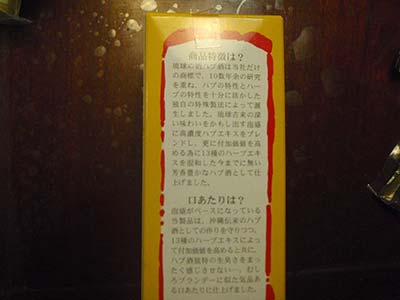 商品特徴は?
琉球の酒ハブ酒は当社だけ
の商標で、10数年余の研究
を重ね、ハブの特性とハー
ブの特性を十分に活かした
独自の特殊製法によって誕
生しました。琉球古来の深
い味わいをかもし出す泡盛
に高濃度ハブエキスをブレ
ンドし、更に付加価値を高
める為に13種のハーブエキ
スを混和した今までに無い
芳香豊かなハブ酒として仕
上げました。
口あたりは?
泡盛がベースになっている
当製品は、沖縄伝来のハブ
酒としての作りを守りつつ、
13種のハーブエキスによって
付加価値を高めると共に、
ハブ酒独特の生臭さをまっ
たく感じさせない…。むし
ろブランデーに似た気品あ
る口あたりに仕上ました。